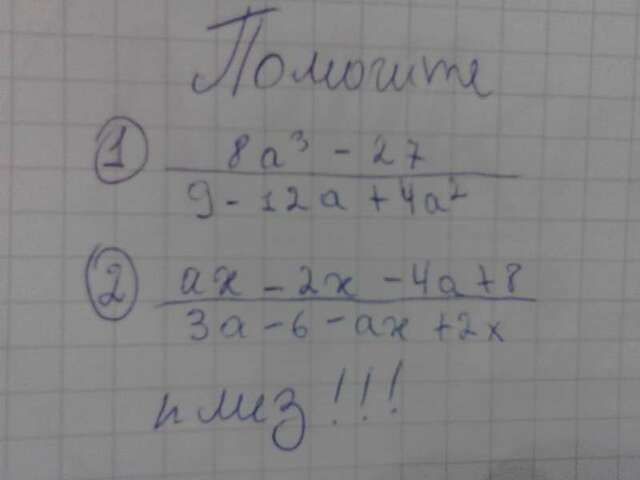 Помогите
1 8a³ - 27
9 - 12a + 4a²
2 ax - 2x - 4a + 8
3a - 6 - ax + 2x
плиз!!!